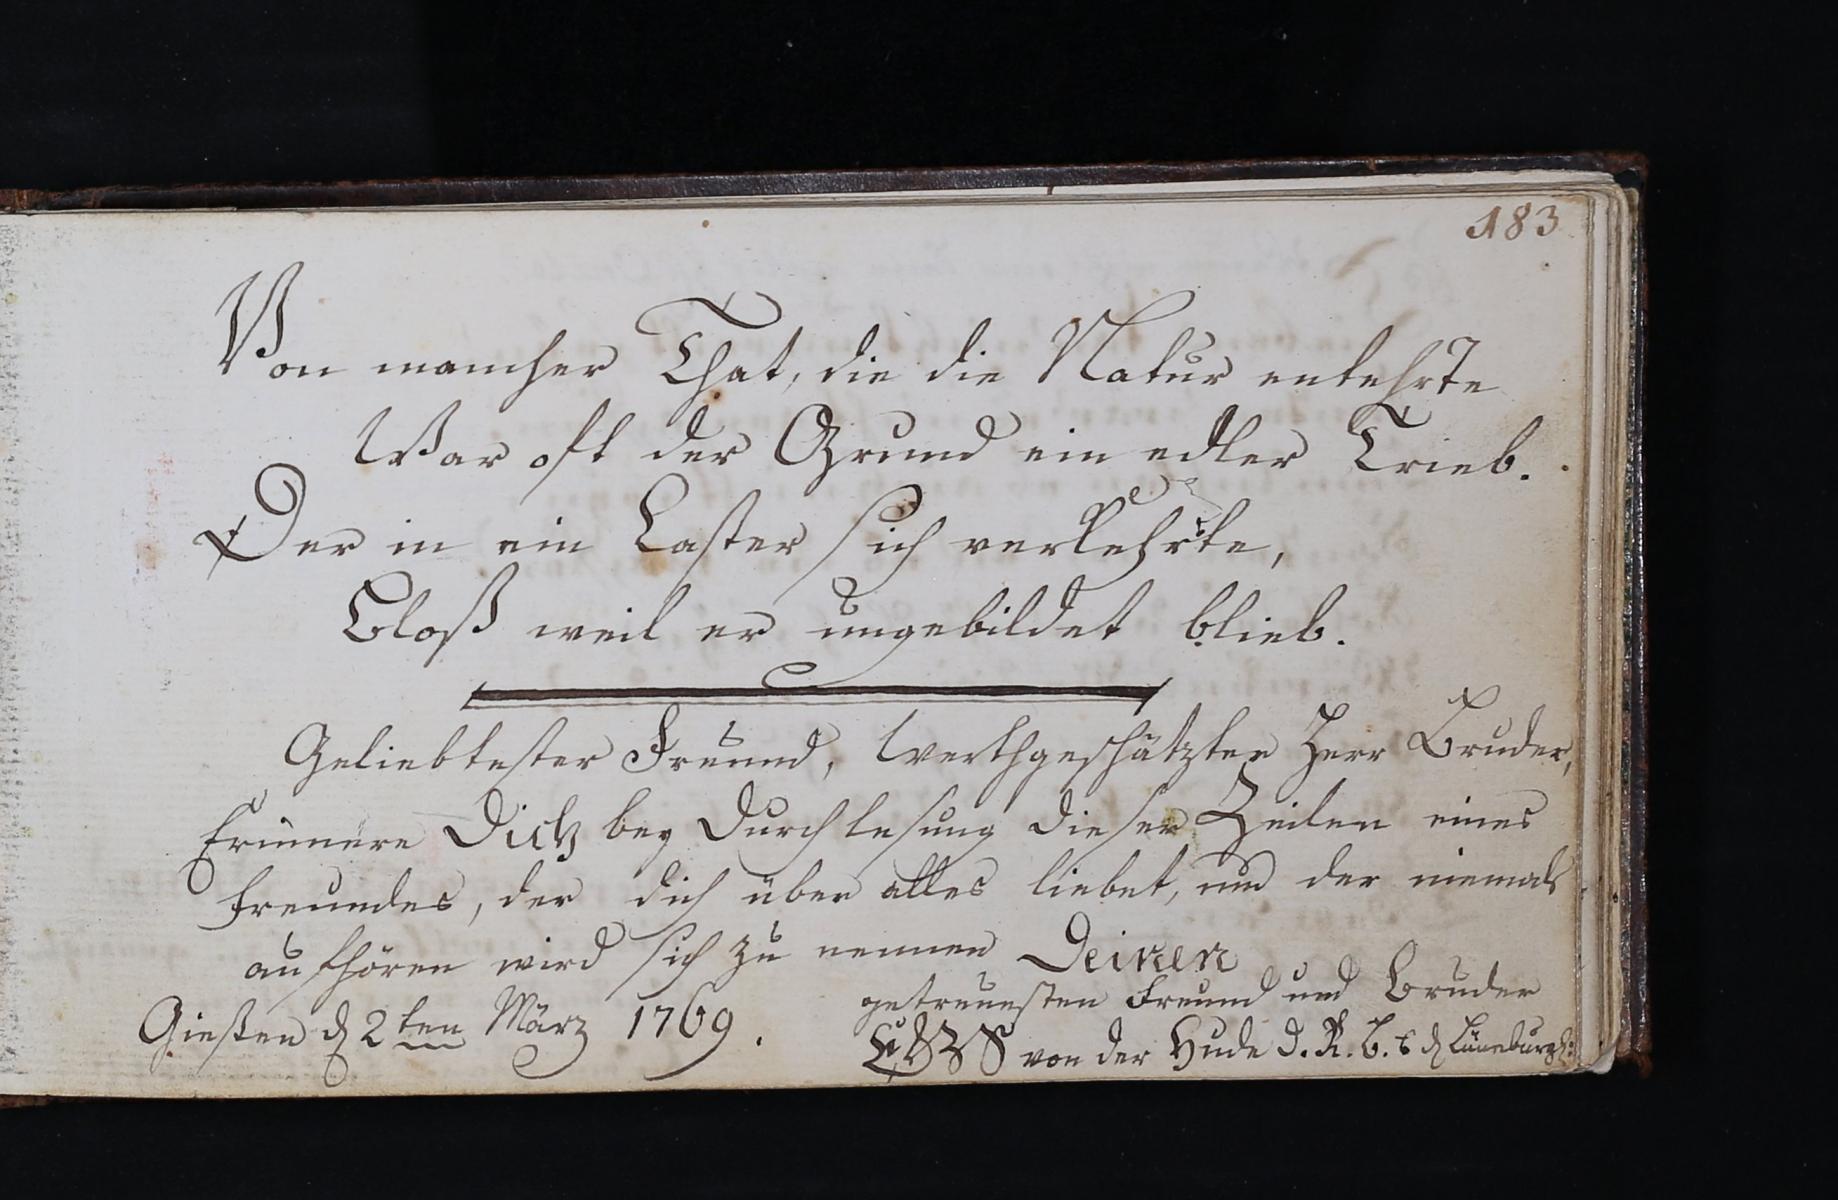 183
Von mancher That, die die Natur entehrte
War oft der Grund ein edler Trieb.
Der in ein Laster sich verkehrte,
Bloß weil er ungebildet blieb.
Geliebtester Freund, Werthgeschätzter Herr Bruder,
Erinnere Dich bey Durchlesung dieser Zeilen eines
Freundes, der dich über alles liebet, und der niemals
aufhören wird sich zu nennen Deinen
getreuesten Freund und Bruder
Giesten d 2ten März 1769.
von der Hude D. R. B. Lüneburg: